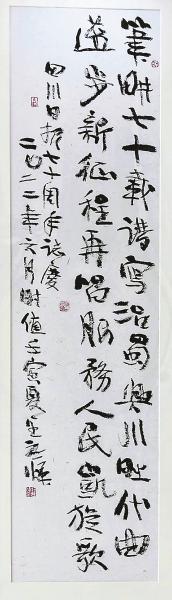 笔耕七十载谱写治蜀兴川时代曲
进步新征程再唱服务人民凯旋歌
四川日报七十周年志庆
二〇二二年六月时值壬寅夏